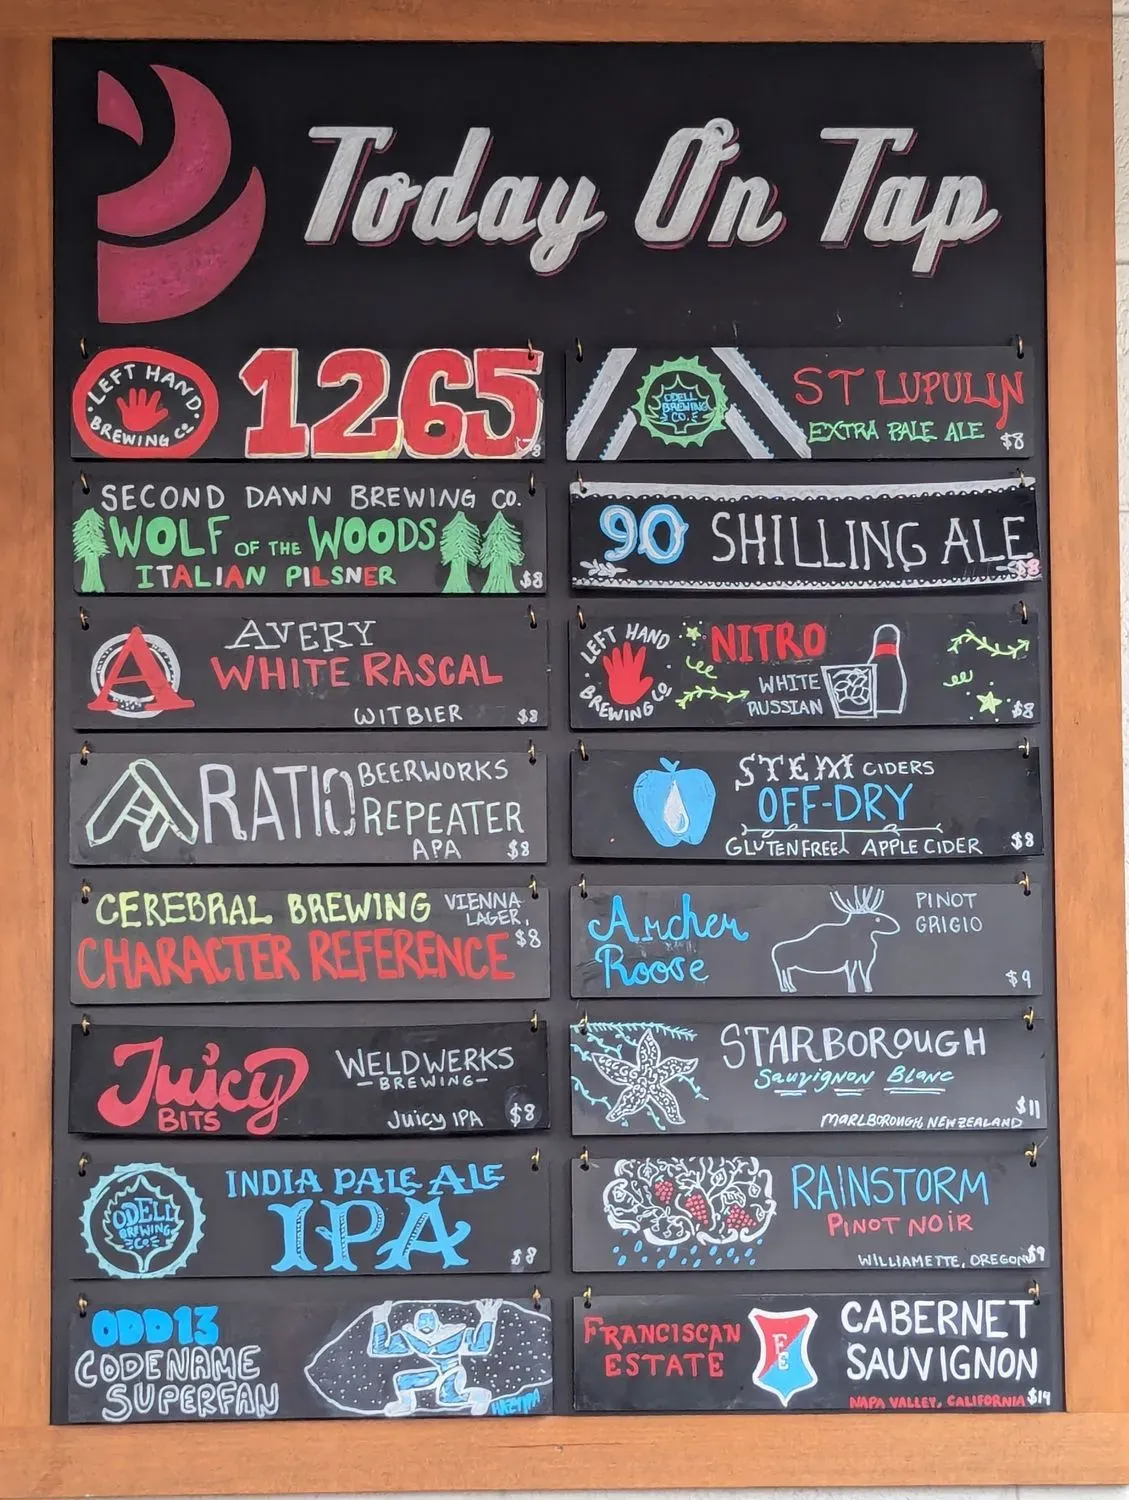 Today On Tap
LEFT HAND
BREWING Co
1265
SECOND DAWN BREWING CO.
WOLF OF THE WOODS
ITALIAN PILSNER
$8
A
AVERY
WHITE RASCAL
WITBIER
$8
RATIO BEERWORKS
REPEATER
APA
$8
CEREBRAL BREWING
VIENNA
LAGER.
$8
CHARACTER REFERENCE
Juicy
BITS
WELDWERKS
-BREWING-
Juicy IPA
$8
ODELL
BREWING
CO
INDIA PALE ALE
IPA
$8
ODD13
CODENAME
SUPERFAN
ODELL
BREWING
CO.
ST LUPULIN
EXTRA PALE ALE
$8
90 SHILLING ALE
$8
LEFT HAND
BREWING Co
NITRO
WHITE
RUSSIAN
$8
STEM CIDERS
OFF-DRY
GLUTEN FREE APPLE CIDER
$8
Archer
Roose
PINOT
GRIGIO
$9
STARBOROUGH
Sauvignon Blanc
MARLBOROUGH NEW ZEALAND
$11
RAINSTORM
PINOT NOIR
WILLIAMETTE, OREGON
$9
FRANCISCAN
ESTATE
F
E
CABERNET
SAUVIGNON
NAPA VALLEY, CALIFORNIA
$14